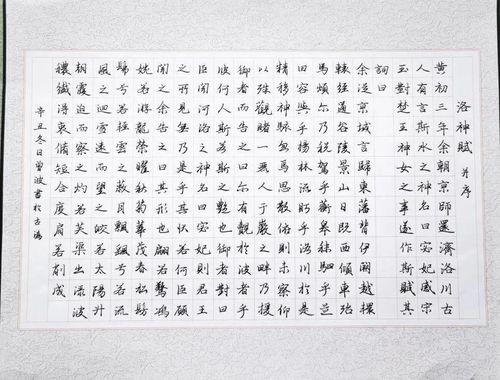 洛神賦 并序
黄初三年余朝京師還濟洛川古
人有言斯水之神名曰宓妃感宋
玉對楚王神女之事遂作斯賦其
詞曰
余從京域言歸東藩背伊闕越轘
轅經通谷陵景山日既西傾車殆
馬煩爾乃税駕乎蘅皋秣駟乎芝
田容與乎楊林流眄乎洛川於是
精移神駭忽焉思散俯則未察仰
以殊觀睹一麗人于巖之畔乃援
御者而告之曰爾有覿於彼者乎
彼何人斯若此之艷也御者對曰
臣聞河洛之神名曰宓妃則君王
之所見無乃是乎其狀若何臣願
聞之余告之曰其形也翩若驚鴻
婉若游龍榮曜秋菊華茂春松髣
髴兮若輕雲之蔽月飄飄兮若流
風之迴雪遠而望之皎若太陽升
朝霞迫而察之灼若芙蕖出渌波
穠纖得衷脩短合度肩若削成
辛丑冬日曾波書於古